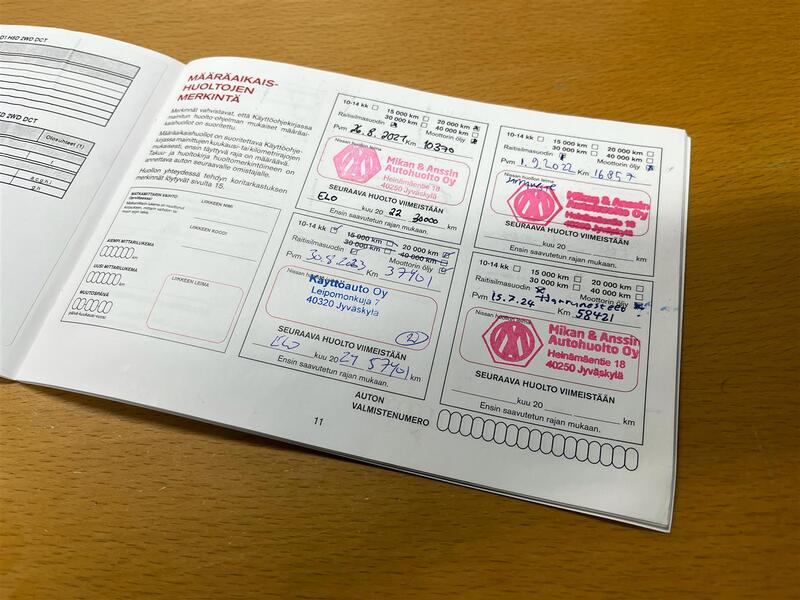 D1 HSD 2WD DCT
2WD DCT
Olosuhteet (1)
MÄÄRÄAIKAIS-
HUOLTOJEN
MERKINTÄ
Merkinnät vahvistavat, että Käyttöohjekirjassa
mainitun huolto-ohjelman mukaiset määräai-
kaishuollot on suoritettu.
Määräaikaishuollot on suoritettava Käyttöohje-
kirjassa mainittujen kuukausi- tai kilometrirajojen
mukaisesti, ensin täyttyvä raja on määräävä.
Takuu- ja huoltokirja huoltomerkintöineen on
annettava auton seuraavalle omistajalle.
Huollon yhteydessä tehdyn koritarkastuksen
merkinnät löytyvät sivulta 15.
MATKAMITTARIN VAIHTO
(tarvittaessa)
LIIKKEEN NIMI
LIIKKEEN KOODI
AIEMPI MITTARILUKEMA
UUSI MITTARILUKEMA
MUUTOSPÄIVÄ
päivä-kuukausi-vuosi
LIIKKEEN LEIMA
10-14 kk 15 000 km 20 000 km
30 000 km 40 000 km
Raitisilmasuodin Moottorin öljy
Pvm 26.8.2021 Km 10370
Mikan & Anssin
Autohuolto Oy
Heinämäentie 18
40250 Jyväskylä
SEURAAVA HUOLTO VIIMEISTÄÄN
ELO kuu 20 22 30000 km
Ensin saavutetun rajan mukaan.
10-14 kk 15 000 km 20 000 km
30 000 km 40 000 km
Raitisilmasuodin Moottorin öljy
Pvm 1.9.2022 Km 16857
Nissan huollon leima
Mikan & Anssin
Autohuolto Oy
Heinämäentie 18
40250 Jyväskylä
SEURAAVA HUOLTO VIIMEISTÄÄN
kuu 20 km
Ensin saavutetun rajan mukaan.
10-14 kk 15 000 km 20 000 km
30 000 km 40 000 km
Raitisilmasuodin Moottorin öljy
Pvm 30.8.2023 Km 37401
Nissan
Käyttöauto Oy
Leipomonkuja 7
40320 Jyväskylä
SEURAAVA HUOLTO VIIMEISTÄÄN
ELO kuu 20 24 57401 km
Ensin saavutetun rajan mukaan.
10-14 kk 15 000 km 20 000 km
30 000 km 40 000 km
Raitisilmasuodin Moottorin öljy
Pvm 15.7.24 Jarrunesteet Km 58421
Nissan huollon leima
Mikan & Anssin
Autohuolto Oy
Heinämäentie 18
40250 Jyväskylä
SEURAAVA HUOLTO VIIMEISTÄÄN
kuu 20 km
Ensin saavutetun rajan mukaan.
11
AUTON
VALMISTENUMERO